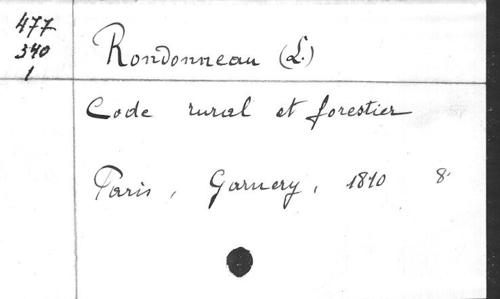 477
340
1
Rondonneau (L.)
Code rural et forestier
Paris, Garnery, 1810 8°